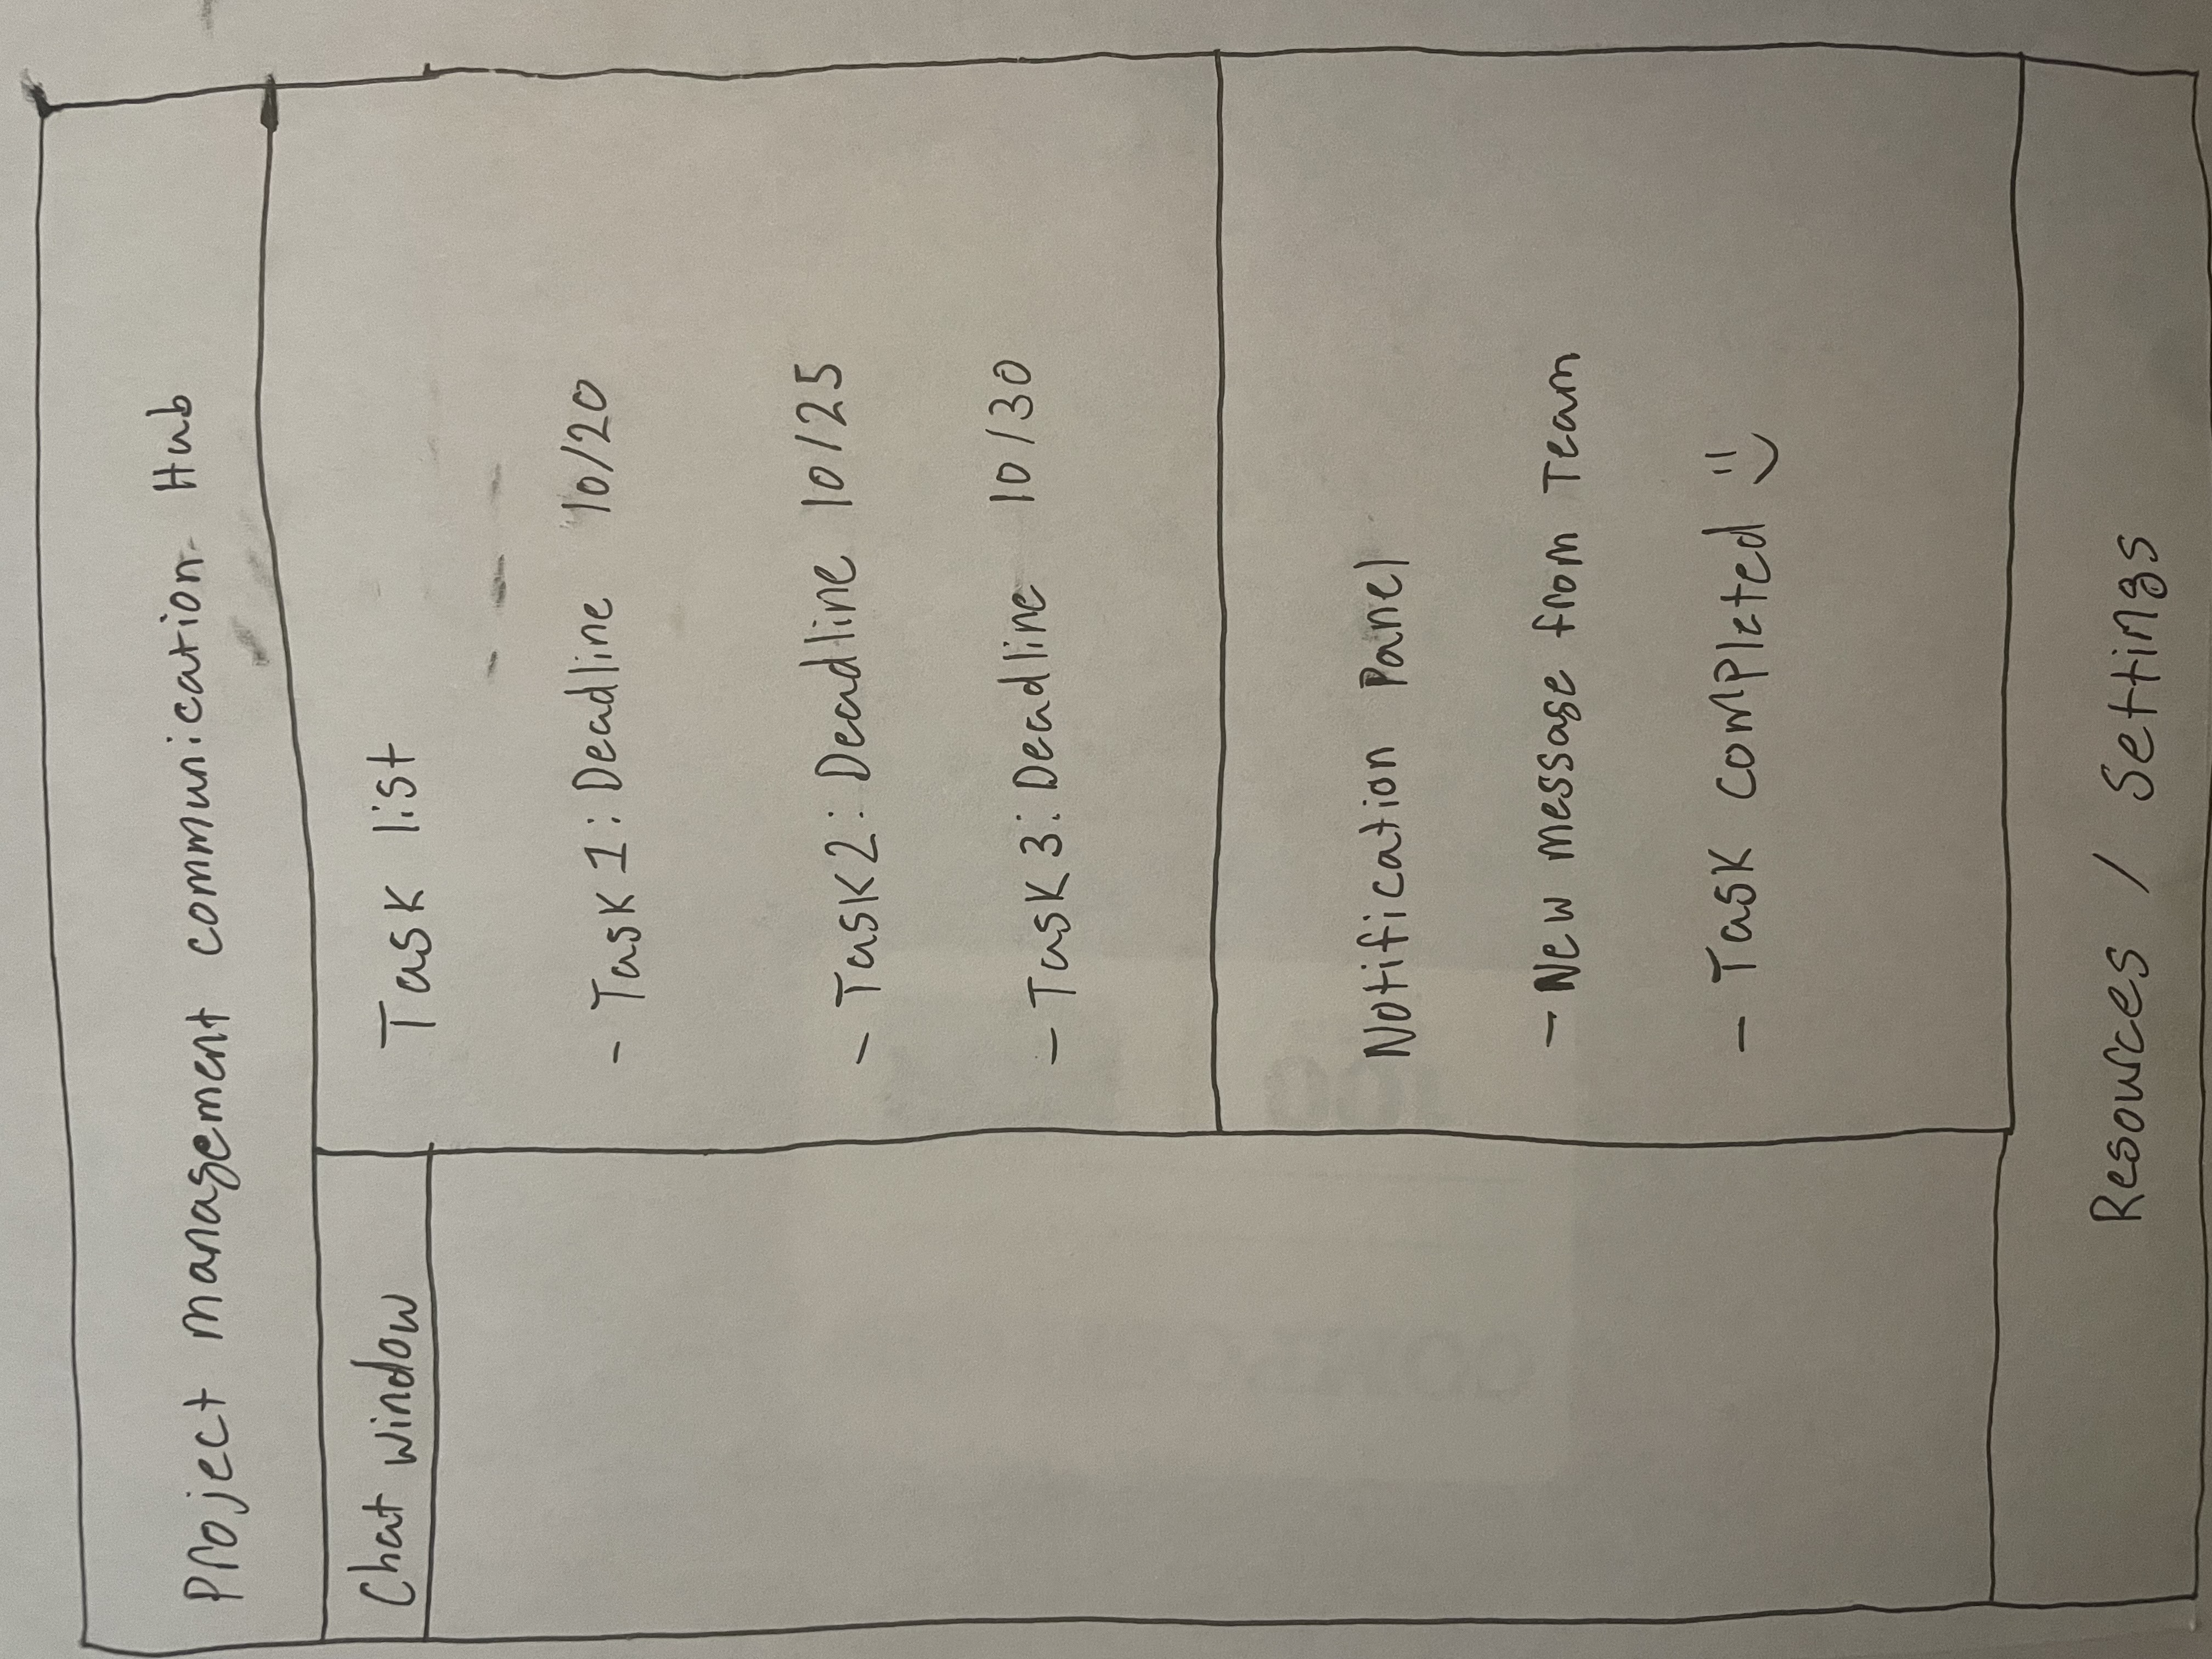 Project management communication Hub
Chat window
Task list
- Task 1: Deadline 10/20
- Task 2: Deadline 10/25
- Task 3: Deadline 10/30
Notification Panel
- New message from Team
- Task completed :)
Resources / Settings